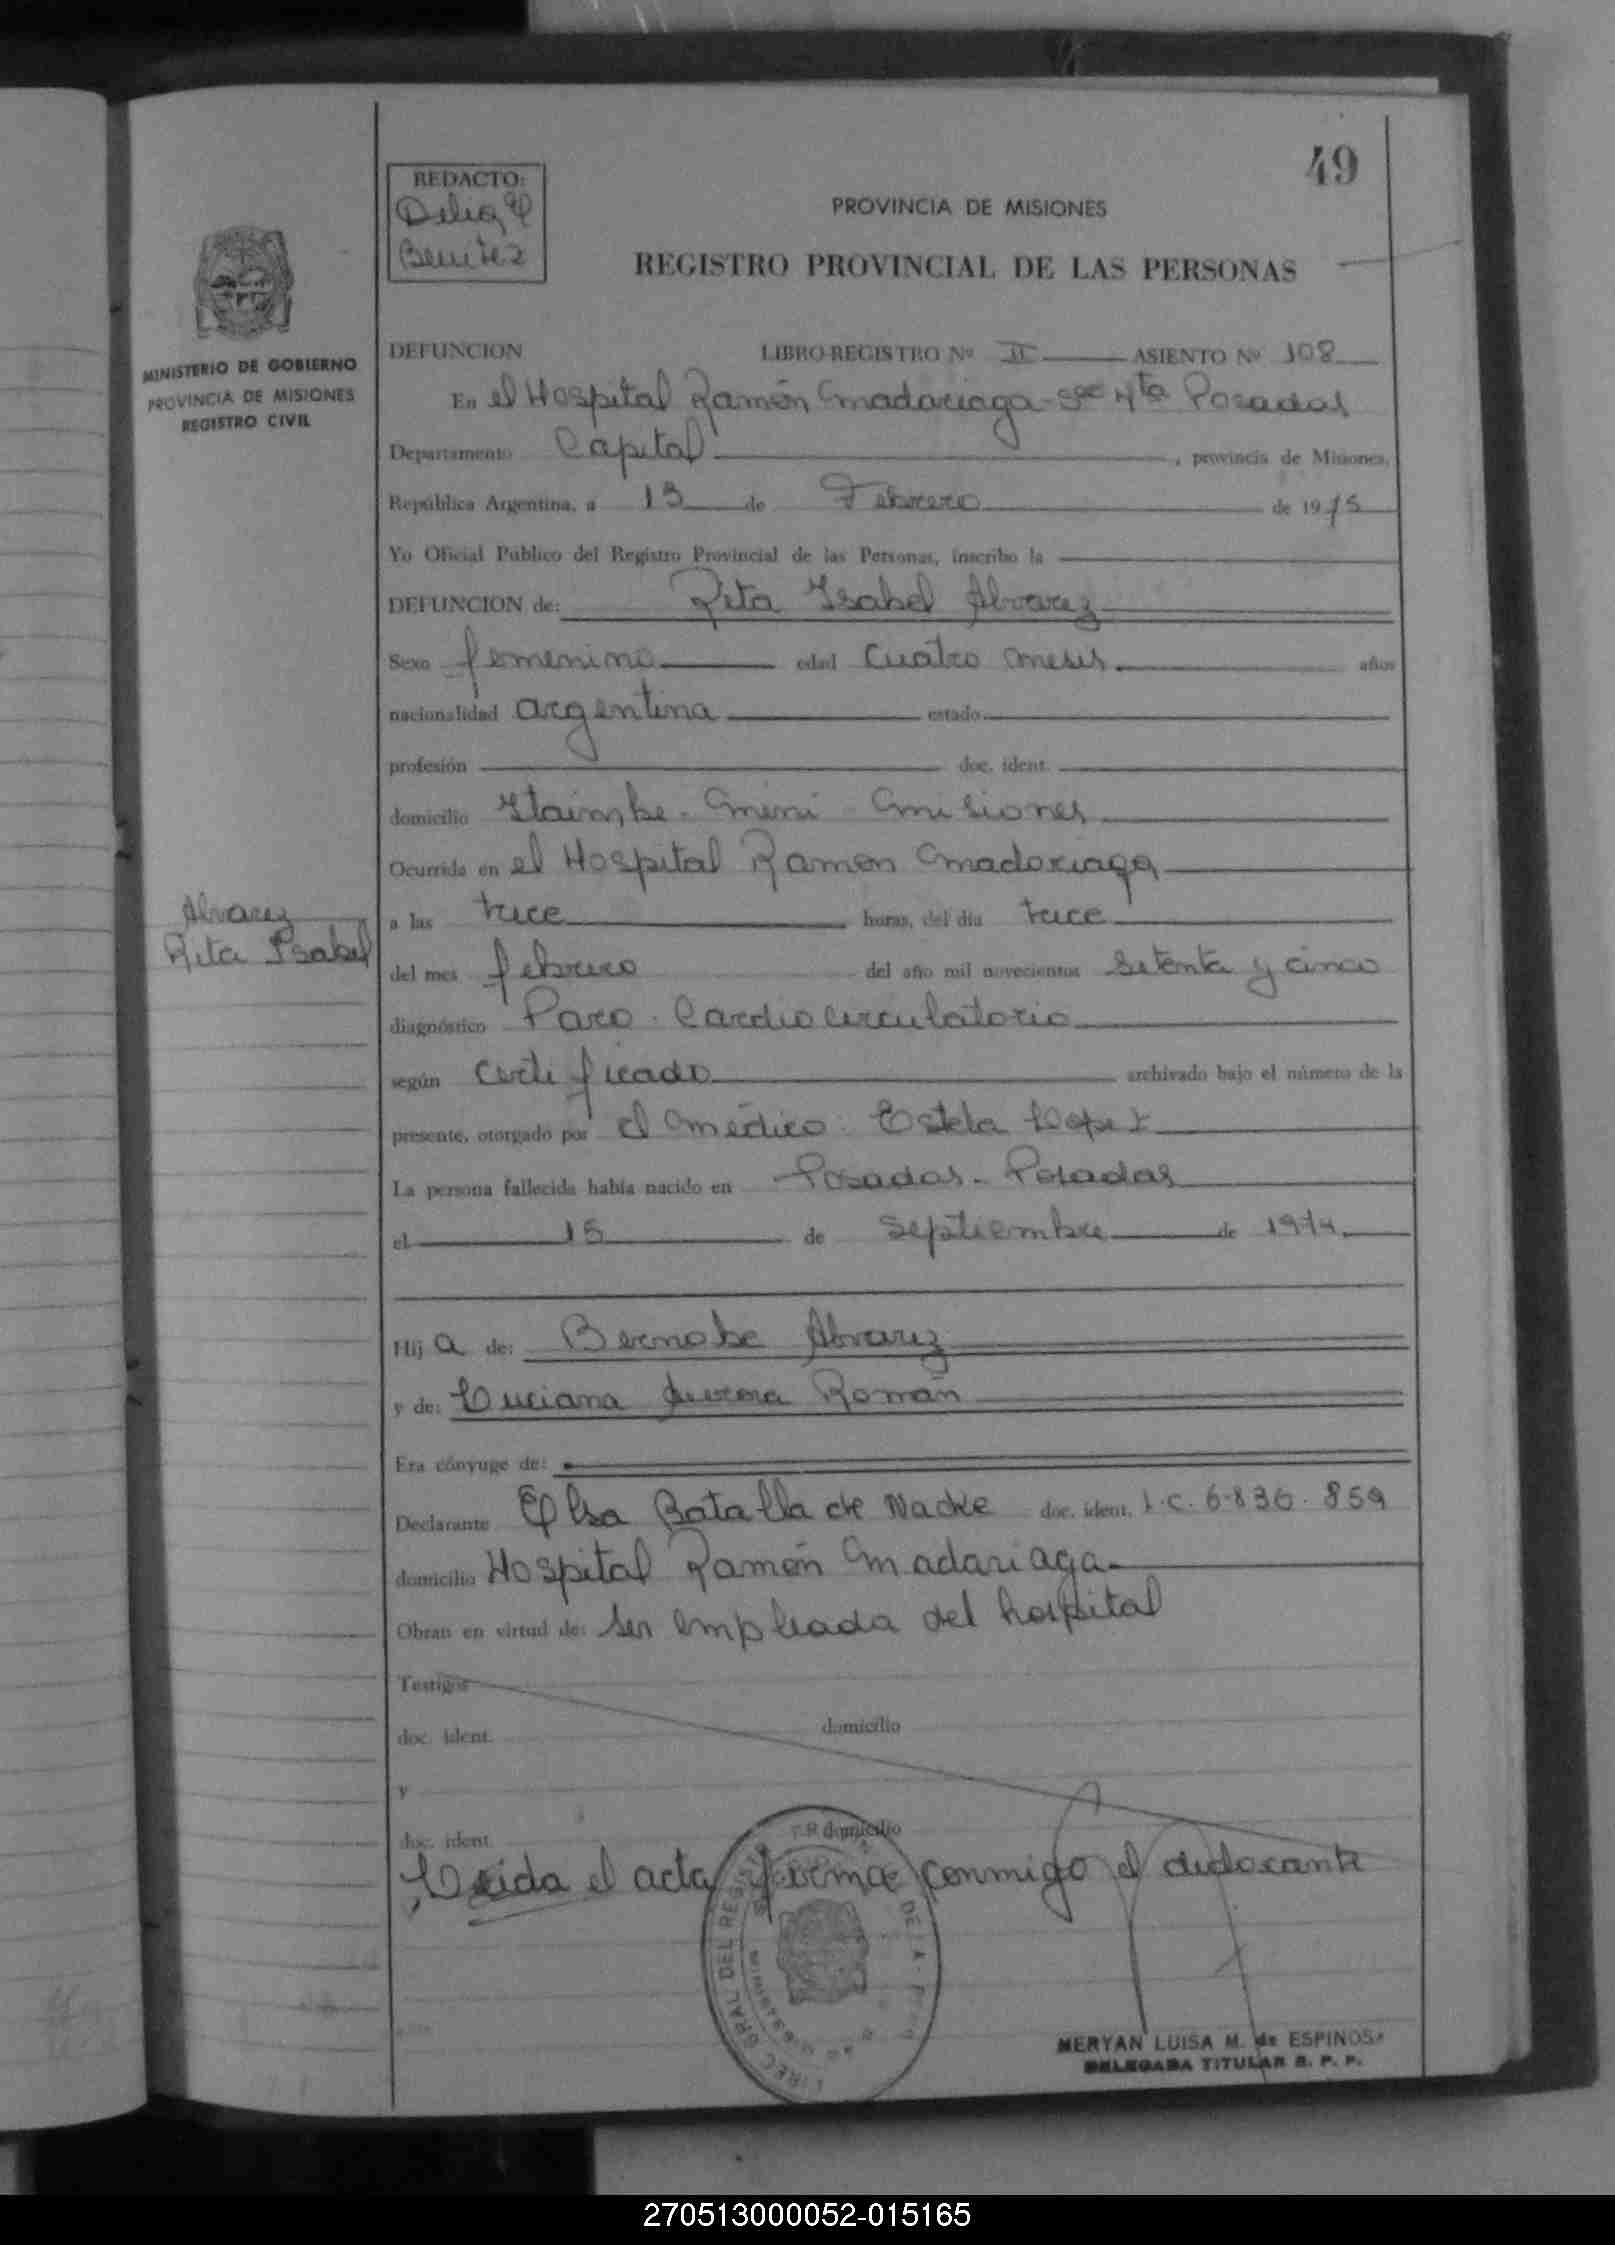 49
REDACTO:
Delia E
Benitez
PROVINCIA DE MISIONES
REGISTRO PROVINCIAL DE LAS PERSONAS
MINISTERIO DE GOBIERNO
PROVINCIA DE MISIONES
REGISTRO CIVIL
DEFUNCION LIBRO-REGISTRO Nº II ASIENTO Nº 108
En el Hospital Ramón Madariaga Sec 4ta Posadas
Departamento Capital, provincia de Misiones,
República Argentina, a 13 de Febrero de 1975
Yo Oficial Público del Registro Provincial de las Personas, inscribo la
DEFUNCION de: Rita Isabel Alvarez
Sexo femenino edad cuatro meses años
nacionalidad argentina estado
profesión doc. ident.
domicilio Itaimbe - Mini - Misiones
Ocurrida en el Hospital Ramon Madariaga
Alvarez
Rita Isabel
a las trece horas, del día trece
del mes febrero del año mil novecientos setenta y cinco
diagnóstico Paro - Cardio circulatorio
según certificado archivado bajo el número de la
presente, otorgado por el médico: Estela Lopez
La persona fallecida había nacido en Posadas - Posadas
el 15 de septiembre de 1974
Hij a de: Bernabe Alvarez
y de: Luciana Román
Era cónyuge de:
Declarante Elsa Batalla de Nacke doc. ident. L.C. 6.836.859
domicilio Hospital Ramón Madariaga
Obran en virtud de: ser empleada del hospital
Testigos
doc. ident. domicilio
y
doc. ident. domicilio
Leida el acta firma conmigo el declarante
DIREC. GRAL DEL REGISTRO DE LA
MERYAN LUISA M. de ESPINOSA
DELEGADA TITULAR R. P. P.
270513000052-015165